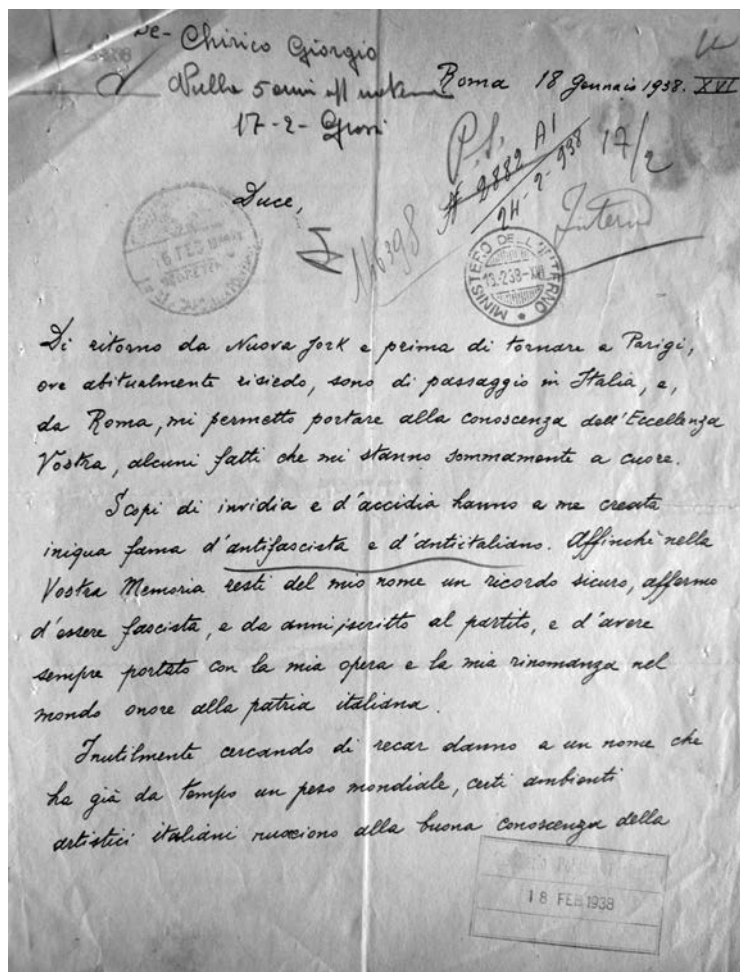 De Chirico Giorgio
Nulla 5 anni
17-2- Grossi
Roma 18 Gennaio 1938. XVI
P.S.
N 2882 A1
24-2-938
17/2
Interno
146398
Duce,
16 FEB
MINISTERO DELL'INTERNO
13.2.38-XVI
Di ritorno da Nuova Jork e prima di tornare a Parigi,
ove abitualmente risiedo, sono di passaggio in Italia, e,
da Roma, mi permetto portare alla conoscenza dell'Eccellenza
Vostra, alcuni fatti che mi stanno sommamente a cuore.
Scopi di invidia e d'accidia hanno a me creata
iniqua fama d'antifascista e d'antiitaliano. Affinchè nella
Vostra Memoria resti del mio nome un ricordo sicuro, affermo
d'essere fascista, e da anni, iscritto al partito, e d'avere
sempre portato con la mia opera e la mia rinomanza nel
mondo onore alla patria italiana.
Inutilmente cercando di recar danno a un nome che
ha già da tempo un peso mondiale, certi ambienti
artistici italiani nuociono alla buona conoscenza della
18 FEB 1938